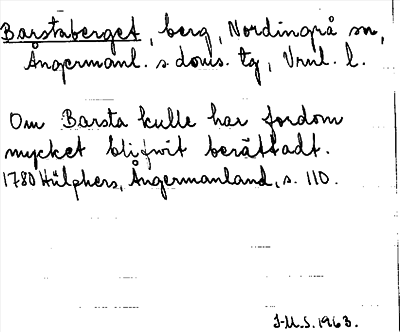 Barstaberget, berg, Nordingrå sn,
Ångermanl. s doms. tg, Vrnl. l.
Om Barsta kulle har fordom
mycket blifvit berättadt.
1780 Hülphers, Ångermanland, s. 110.
I-M.S. 1963.